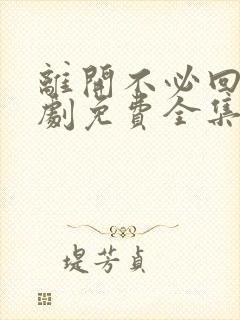 離開不必回
劇免費全集
堤芳貞